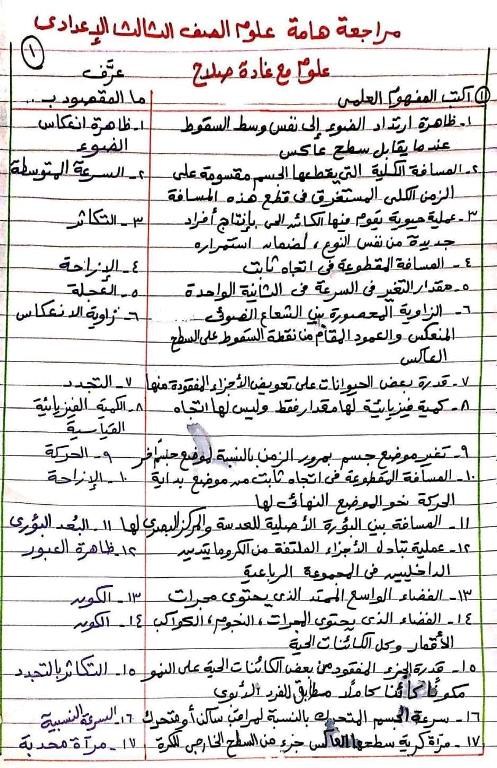 مراجعة هامة علوم الصف الثالث الإعدادى
١
علوم مع غادة صلاح
عرَّف
١ اكتب المفهوم العلمى
ما المقصود بـ...
١- ظاهرة ارتداد الضوء إلى نفس وسط السقوط
عندما يقابل سطح عاكس
١- ظاهرة انعكاس
الضوء
٢- المسافة الكلية التى يقطعها الجسم مقسومة على
الزمن الكلى المستغرق فى قطع هذه المسافة
٢- السرعة المتوسطة
٣- عملية حيوية يقوم فيها الكائن الحى بإنتاج أفراد
جديدة من نفس النوع، لضمان استمراره
٣- التكاثر
٤- المسافة المقطوعة فى اتجاه ثابت
٤- الإزاحة
٥- مقدار التغير فى السرعة فى الثانية الواحدة
٥- العجلة
٦- الزاوية المحصورة بين الشعاع الضوئى
المنعكس والعمود المقام من نقطة السقوط على السطح
العاكس
٦- زاوية الانعكاس
٧- قدرة بعض الحيوانات على تعويض الأجزاء المفقودة منها
٧- التجدد
٨- كمية فيزيائية لها مقدار فقط وليس لها اتجاه
٨- الكمية الفيزيائية
القياسية
٩- تغير موضع جسم بمرور الزمن بالنسبة لموضع جسم آخر
٩- الحركة
١٠- المسافة المقطوعة فى اتجاه ثابت من موضع بداية
الحركة نحو الموضع النهائى لها
١٠- الإزاحة
١١- المسافة بين البؤرة الأصلية للعدسة والمركز البصرى لها
١١- البُعد البؤرى
١٢- عملية تبادل الأجزاء الملتفة من الكروماتيدين
الداخليين فى المجموعة الرباعية
١٢- ظاهرة العبور
١٣- الفضاء الواسع الممتد الذى يحتوى مجرات
١٣- الكون
١٤- الفضاء الذى يحتوى المجرات، النجوم، الكواكب
الأقمار وكل الكائنات الحية
١٤- الكون
١٥- قدرة الجزء المفقود من بعض الكائنات الحية على النمو
مكونًا كائنا كاملا مطابق للفرد الأبوى
١٥- التكاثر بالتجدد
١٦- سرعة الجسم المتحرك بالنسبة لمراقب ساكن أو متحرك
١٦- السرعة النسبية
١٧- مرآة كرية سطحها العاكس جزء من السطح الخارجى للكرة
١٧- مرآة محدبة